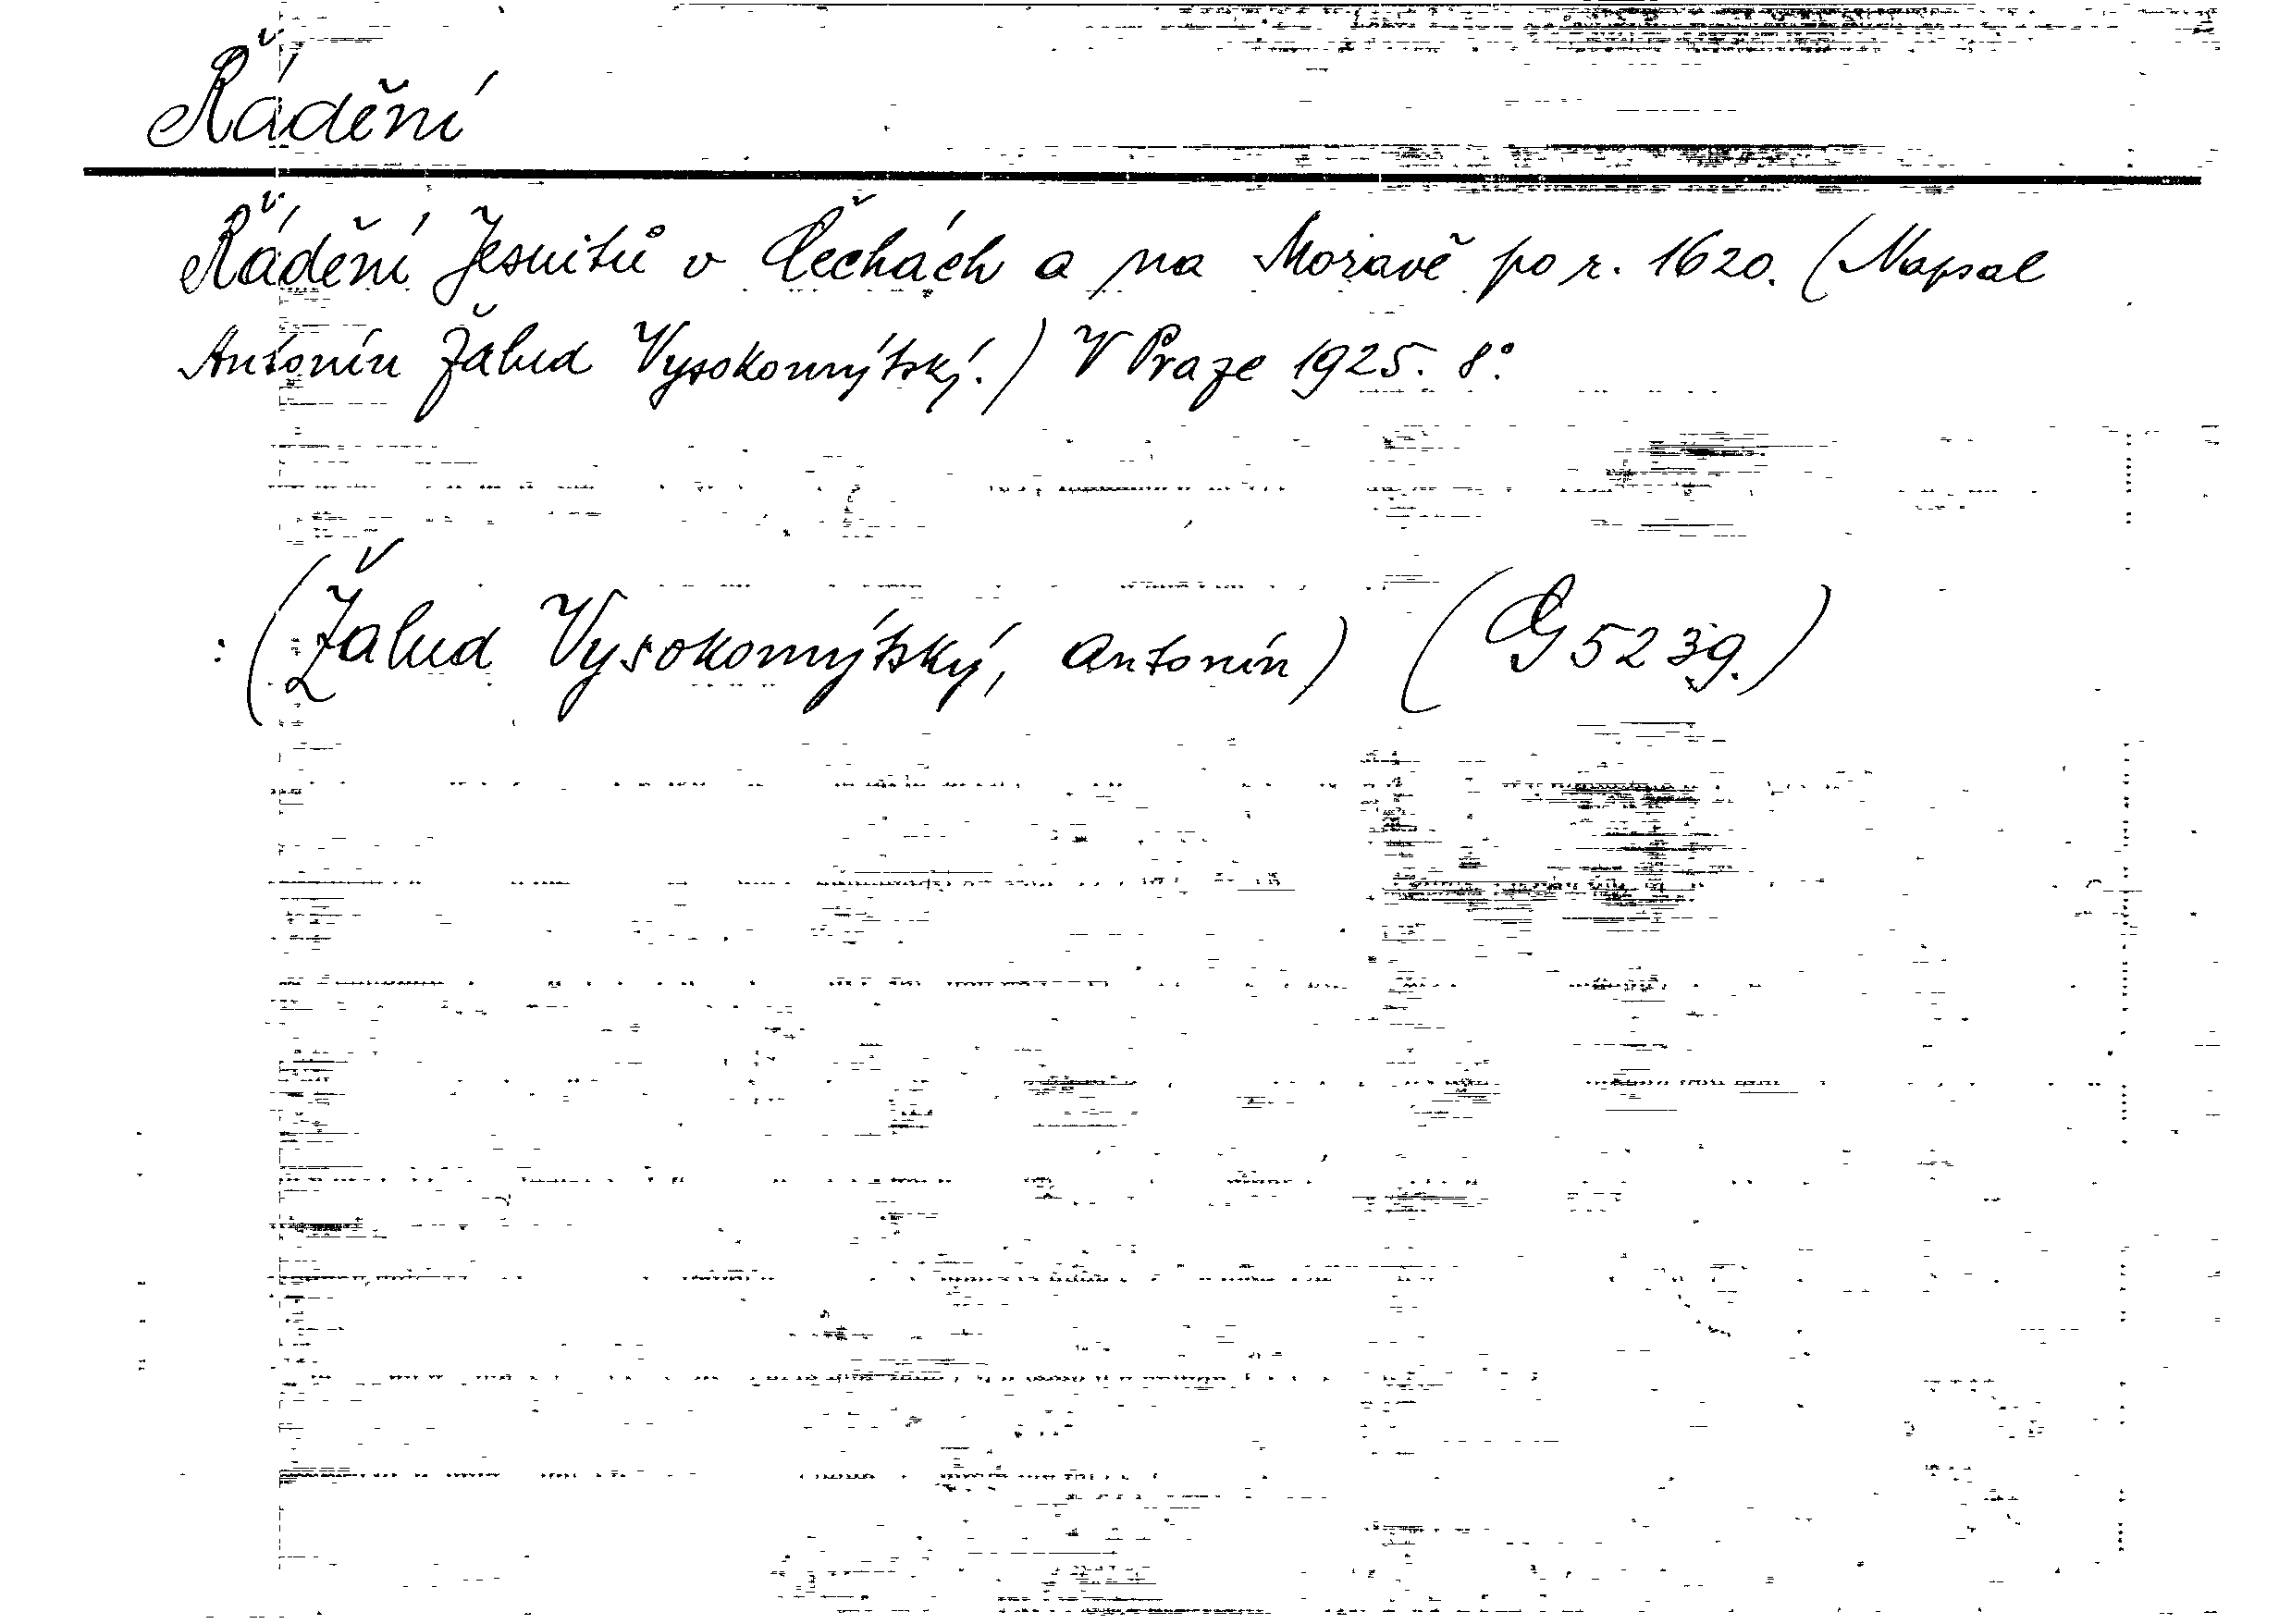 Řádění
Řádění Jesuitů v Čechách a na Moravě po r. 1620. (Napsal
Antonín Žalud Vysokomýtský.) V Praze 1925. 8°.
: (Žalud Vysokomýtský, Antonín) (G 5239.)